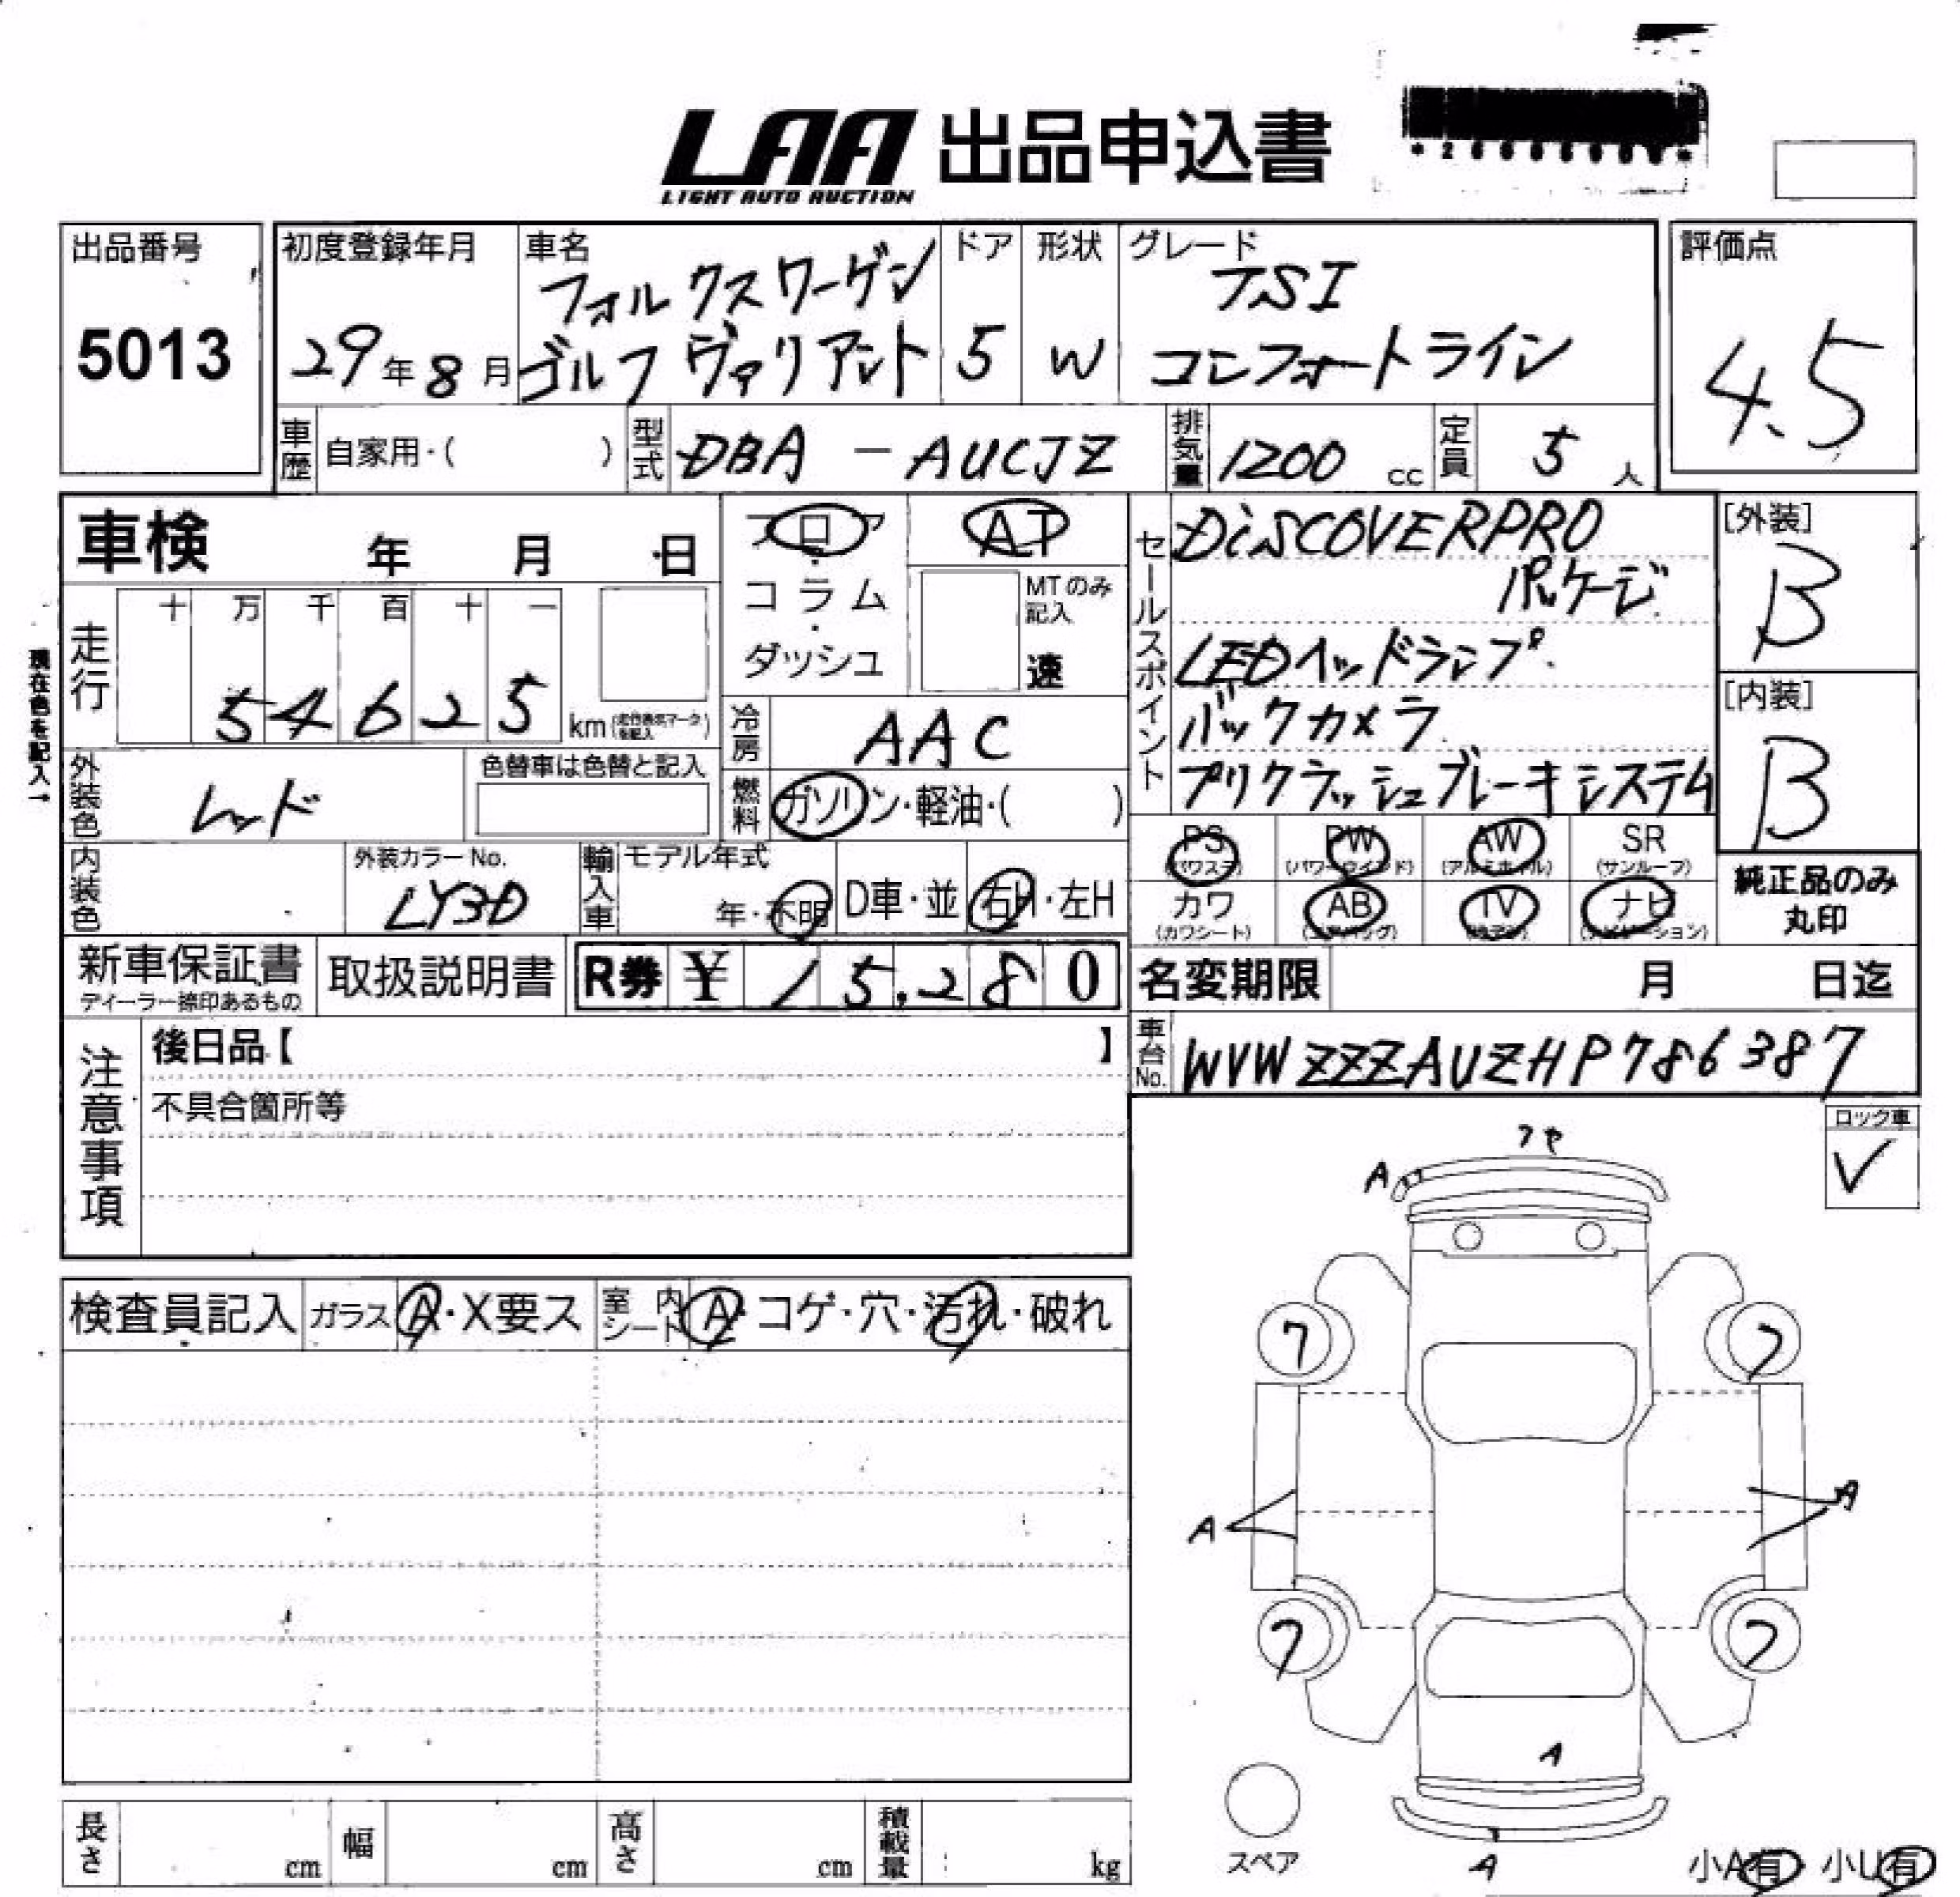 LAA 出品申込書
LIGHT AUTO AUCTION
出品番号
5013
初度登録年月
29年8月
車名
フォルクスワーゲン
ゴルフ ヴァリアント
ドア
5
形状
W
グレード
TSI
コンフォートライン
評価点
4.5
車歴
自家用・( )
型式
DBA - AUCJZ
排気量
1200 cc
定員
5 人
車検 年 月 日
フロア
・
コラム
・
ダッシュ
AT
MTのみ
記入
速
セールスポイント
DiSCOVERPRO
パッケージ
LEDヘッドランプ
バックカメラ
プリクラッシュブレーキシステム
[外装]
B
[内装]
B
現在色を記入→
走行
十 万 千 百 十 一
5 4 6 2 5
km (走行表示マークを記入)
冷房
AAC
外装色
レッド
色替車は色替と記入
燃料
ガソリン・軽油・( )
内装色
外装カラーNo.
LY3D
輸入車
モデル年式
年・不明
D車・並
右H・左H
PS
(パワステ)
PW
(パワーウインド)
AW
(アルミホイル)
SR
(サンルーフ)
カワ
(カワシート)
AB
(エアバッグ)
TV
ナビ
(ナビゲーション)
純正品のみ
丸印
新車保証書
ディーラー捺印あるもの
取扱説明書
R券 ¥ 15.280
名変期限 月 日迄
車台No.
WVWZZZAUZHP786387
注意事項
後日品【 】
不具合箇所等
ロック車
✓
フヤ
A
検査員記入
ガラス
A・X要ス
室内
シート
A・コゲ・穴・汚れ・破れ
7
7
A
A
7
7
A
スペア
A
小A有 小U有
長さ cm
幅 cm
高さ cm
積載量 kg